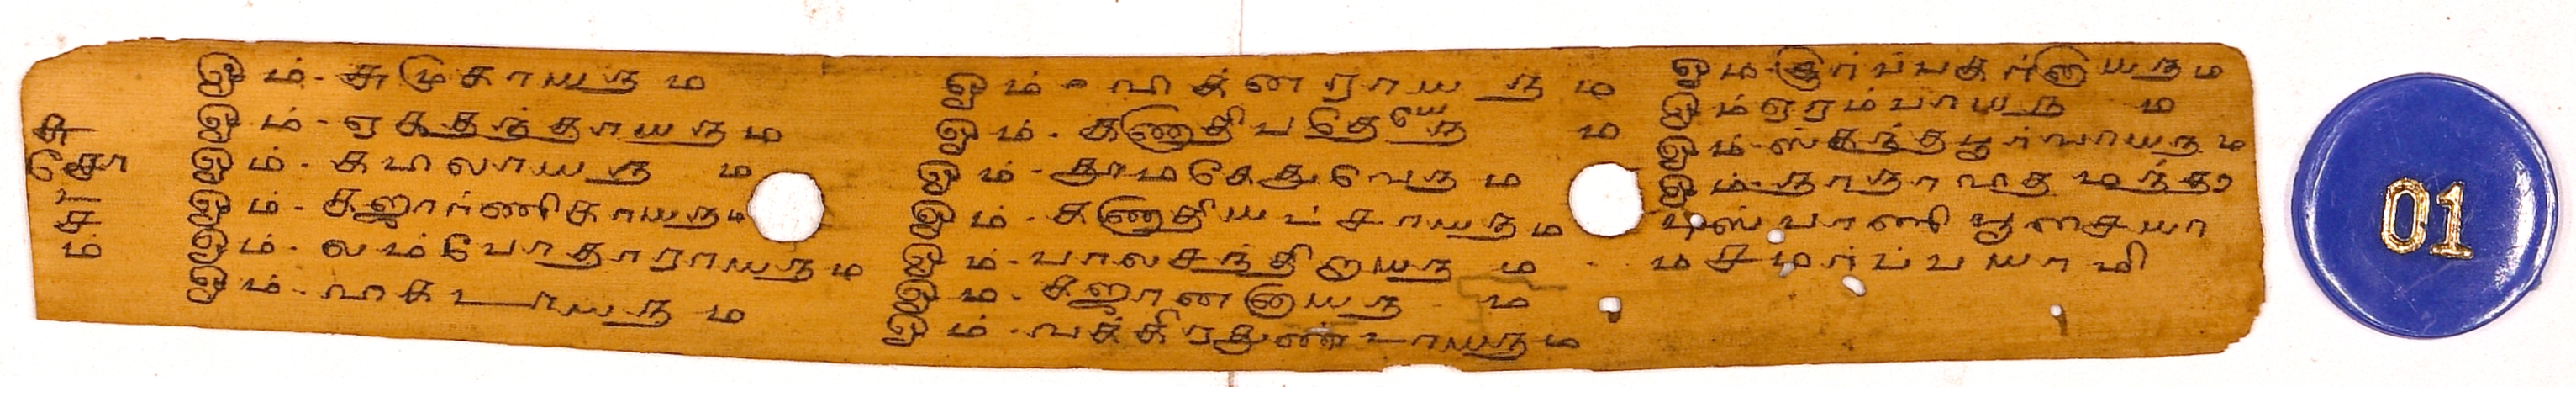 சு
கோ
ர்
ச
ம்
ஓம்-சுமுகாயநம
ஓம்-ஏகதந்தாயநம
ஓம்-கபிலாயநம
ஓம்-கஜார்ணிகாயநம
ஓம்-லம்போதராராயநம
ஓம்-விகடாயநம
ஓம்-விக்னராயநம
ஓம்-கணாதிபதயேநம
ஓம்-தூமகேதுவேநம
ஓம்-கணாதியட்சாயநம
ஓம்-பாலசந்திறாயநம
ஓம்-கஜானனாயநம
ஓம்-வக்கிரதுண்டாயநம
ஓம்-சூர்ப்பகர்னாயநம
ஓம்ஏரம்பாயநம
ஓம்-ஸ்கந்தபூர்வாயநம
ஓம்-நாநாவித மந்திர
புஸ்பாணி பூசையா
ம சமர்ப்பயாமி
01